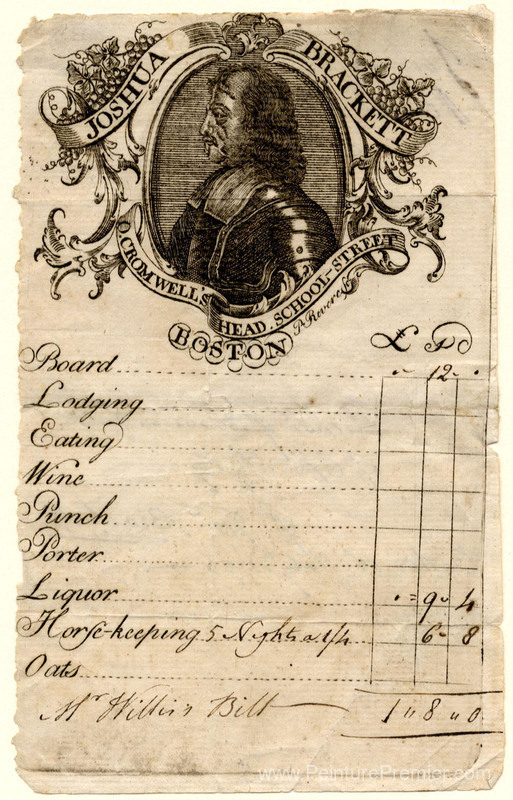 JOSHUA BRACKETT
O. CROMWELL'S HEAD, SCHOOL-STREET
P Revere
BOSTON
£ S D
Board 12
Lodging
Eating
Wine
Punch
Porter
Liquor 9 4
Horse-keeping 5 Nights a 1/4 6 8
Oats
Mr Willis's Bill 1 " 8 " 0
www.PeinturePremier.com